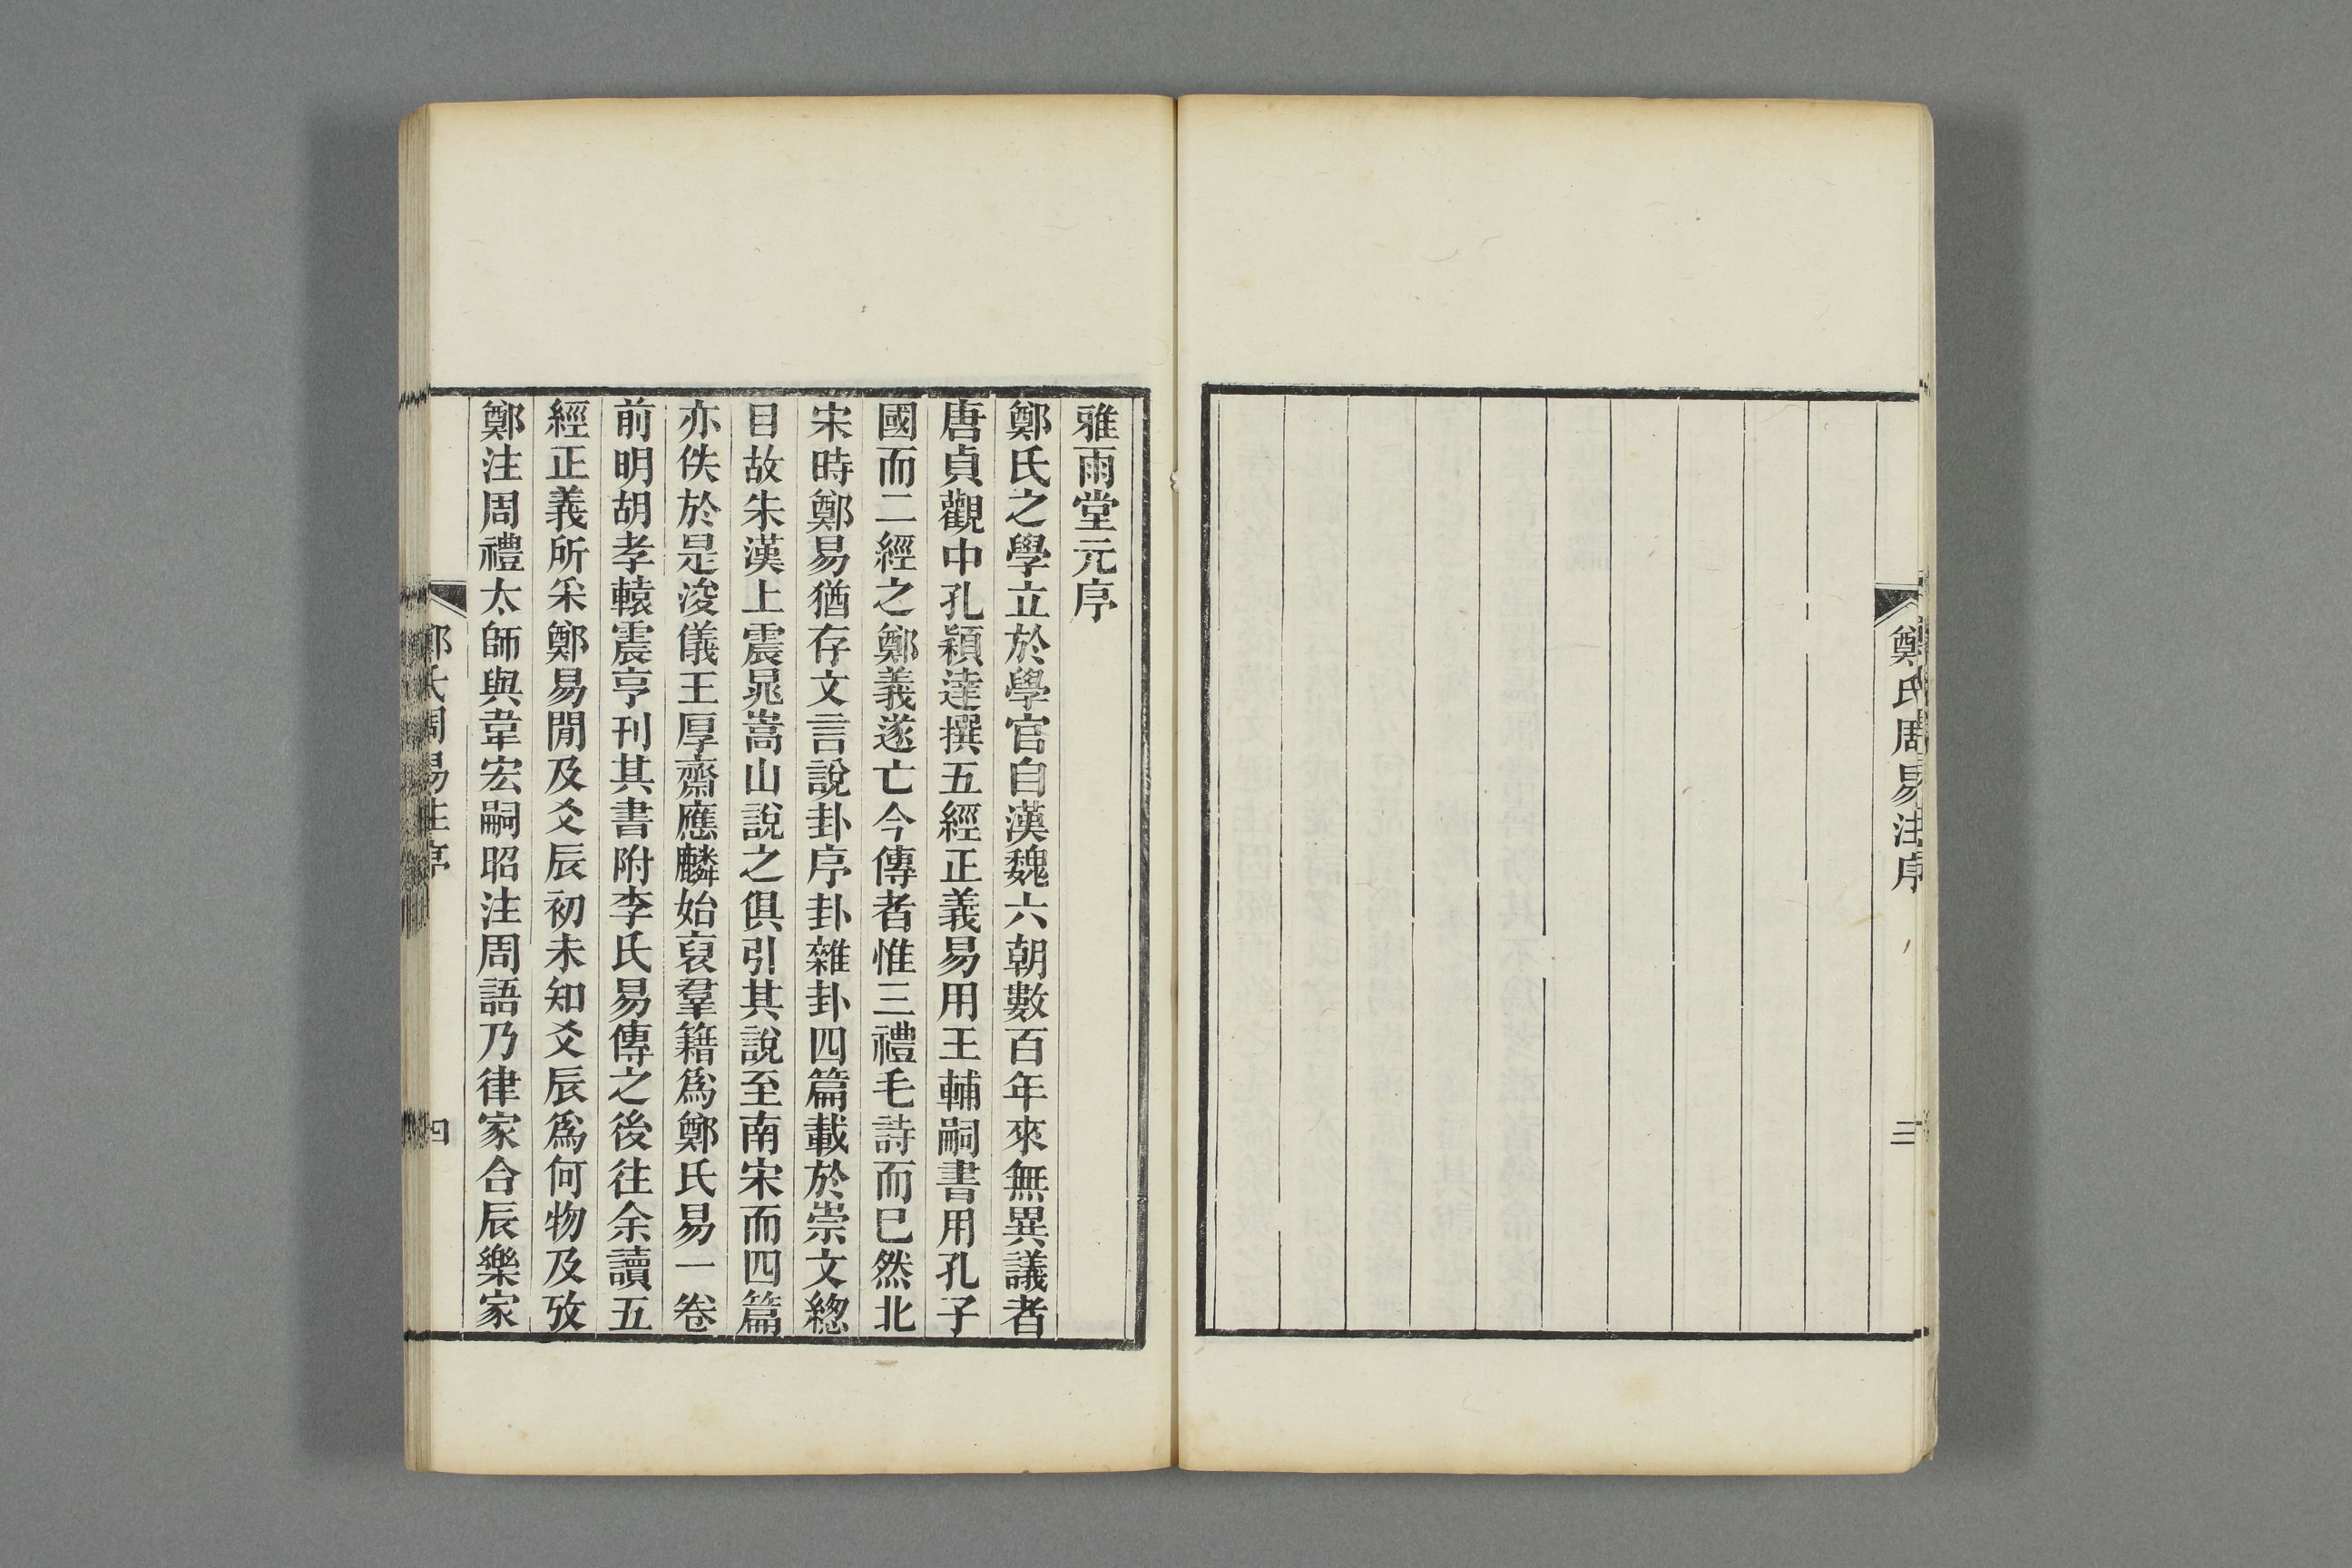 鄭氏周易注序
三
雅雨堂元序
鄭氏之學立於學官自漢魏六朝數百年來無異議者
唐貞觀中孔穎達撰五經正義易用王輔嗣書用孔子
國而二經之鄭義遂亡今傳者惟三禮毛詩而巳然北
宋時鄭易猶存文言說卦序卦雜卦四篇載於崇文緫
目故朱漢上震晁嵩山說之俱引其說至南宋而四篇
亦佚於是浚儀王厚齋應麟始裒羣籍爲鄭氏易一卷
前明胡孝轅震亨刊其書附李氏易傳之後往余讀五
經正義所釆鄭易閒及爻辰初未知爻辰爲何物及攷
鄭注周禮太師與韋宏嗣昭注周語乃律家合辰樂家
鄭氏周易注序
四